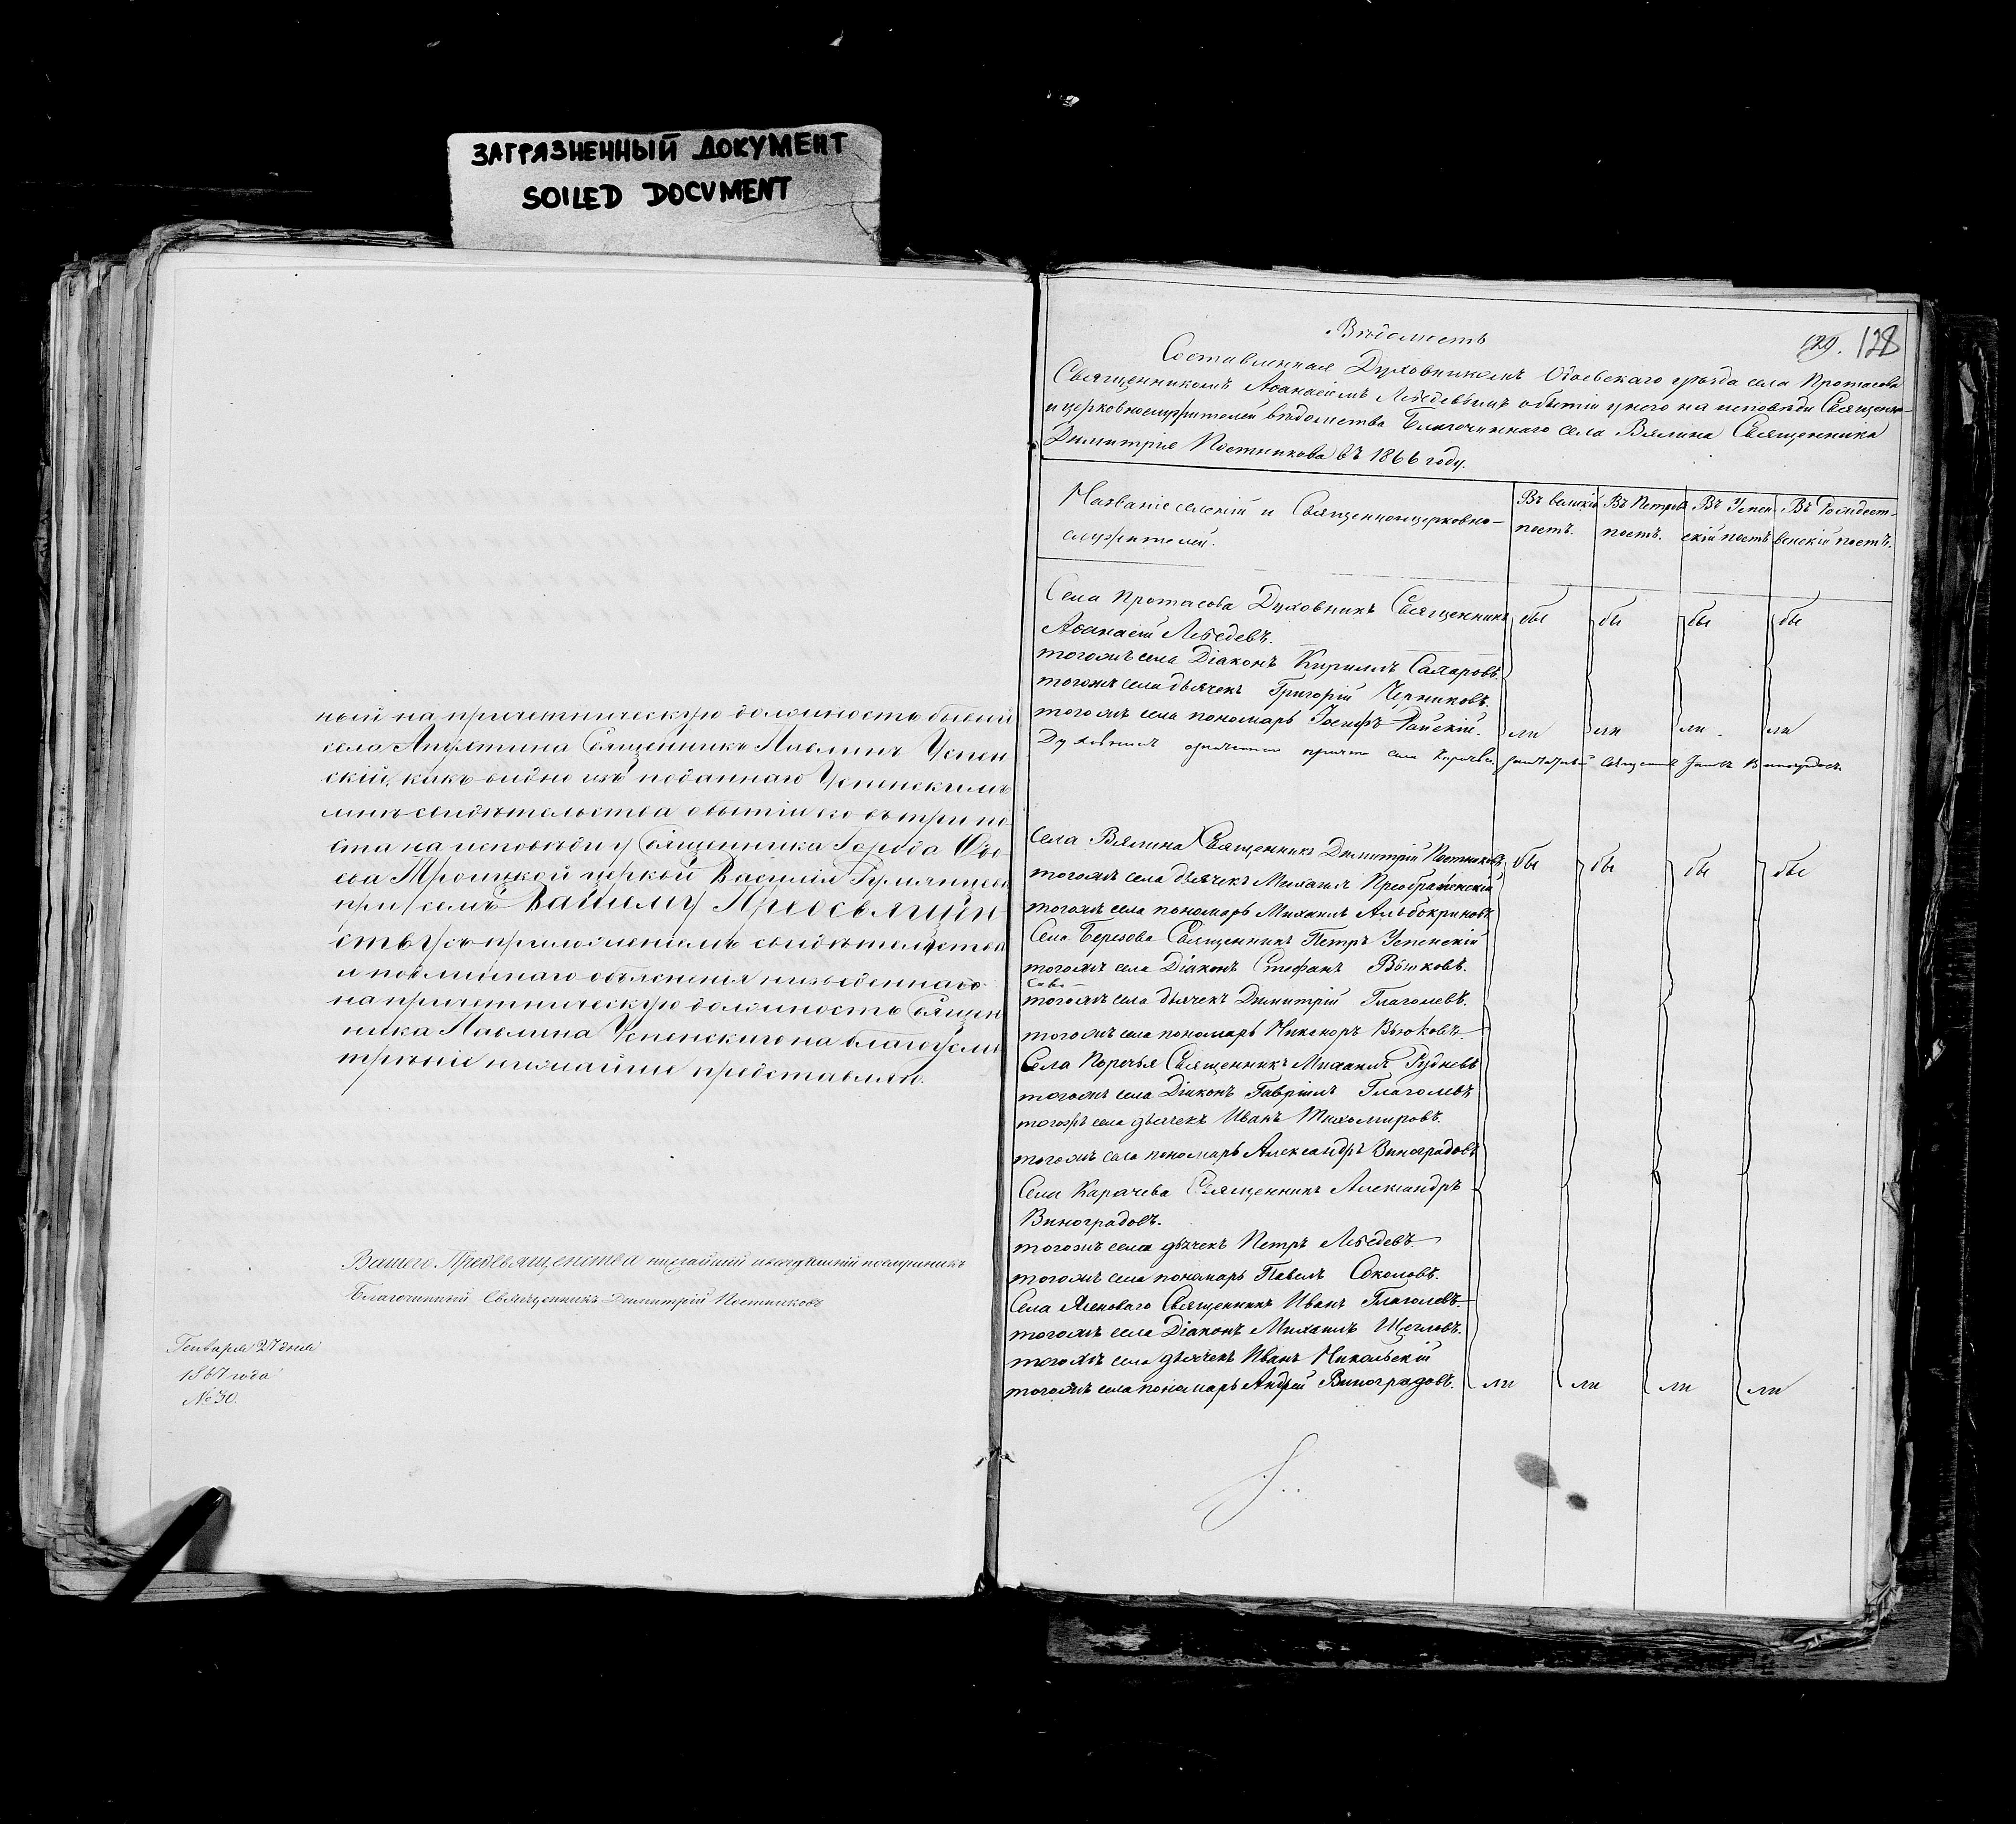 ЗАГРЯЗНЕННЫЙ ДОКУМЕНТ
SOILED DOCUMENT
ный на причетническую должность бывший
села Апухтина Священникъ Павлинъ Успен-
скій, какъ видно изъ поданнаго Успенскимъ
мнѣ свидѣтельства о бытіи его въ три по-
ста на исповѣди у Священника Города Одо-
ева Троицкой церкви Василія Румянцева
при семъ Вашему Преосвящен-
ству съ приложеніемъ свидѣтельства
и подлиннаго объясненія низведеннаго
на причетническую должность Священ
ника Павлина Успенскаго на благоусмо
трѣніе нижайше представляю.
Вашего Преосвященства нижайшій послушникъ
Благочинный Священникъ Димитрій Постниковъ
Генваря 27 дня
1867 года
№ 30.
129. 128
Вѣдомость
Составленная Духовникомъ Одоевскаго уѣзда села Протасова
Священникомъ Аѳанасіемъ Лебедевымъ о бытіи у него на исповѣди Священно-
и церковнослужителей вѣдомства Благочиннаго села Вялина Священника
Димитрія Постникова въ 1866 году.
Названіе селеній и Священноцерковно-
служителей.
Въ великій постъ.
Въ Петровъ постъ.
Въ Успен скій постъ
Въ Рождест- венскій постъ.
Села Протасова Духовникъ Священникъ бы бы бы бы
Аѳанасій Лебедевъ.
того жъ села Діаконъ Кириллъ Сахаровъ.
того жъ села дьячекъ Григорій Черниковъ.
того жъ села пономарь Іосифъ Райскій. ли ли ли ли
Духовникъ села Священникъ Виноградовъ
Села Вялина Священникъ Димитрій Постниковъ бы бы бы бы
того жъ села дьячекъ Михаилъ Преображенскій
того жъ села пономарь Михаилъ Альбокриновъ
Села Березова Священникъ Петръ Успенскій
того жъ села Діаконъ Стефанъ Вьюковъ.
того жъ села дьячекъ Димитрій Глаголевъ.
того жъ села пономарь Никаноръ Вьюковъ
Села Поречья Священникъ Михаилъ Рудневъ
того жъ села Діаконъ Гавріилъ Глаголевъ
того жъ села дьячекъ Иванъ Тихомировъ.
того жъ села пономарь Александръ Виноградовъ
Села Карачева Священникъ Александръ
Виноградовъ.
того жъ села дьячекъ Петръ Лебедевъ
того жъ села пономарь Павелъ Соколовъ.
Села Яженоваго Священникъ Иванъ Глаголевъ
того жъ села Діаконъ Михаилъ Щегловъ.
того жъ села дьячекъ Иванъ Никольскій
того жъ села пономарь Андрей Виноградовъ. ли ли ли ли